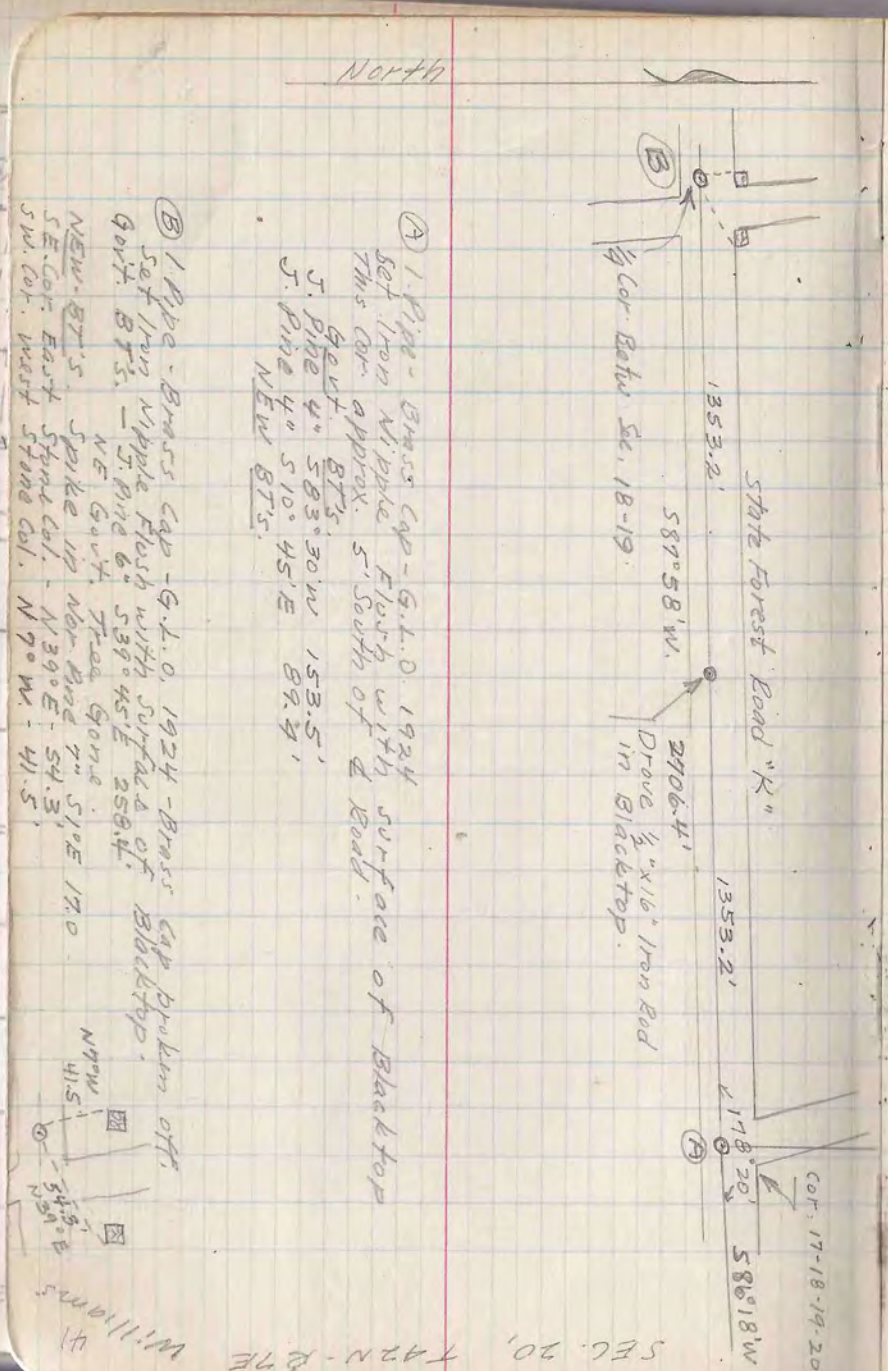 SEC. 20, T42N-R7E
Williams
41
North
Cor. 17-18-19-20
State Forest Road "K"
1353.2'
1353.2'
178°20'
S86°18'W
S87°58'W.
2706.4'
Drove ½"x16" Iron Rod
in Blacktop.
¼ Cor. Betw Se. 18-19.
B
A
A I. Pipe - Brass Cap - G.L.O. 1924
Set Iron Nipple Flush with surface of Blacktop
This Cor. approx. 5' South of ₵ Road.
Govt. BT's.
J. Pine 4" S83°30'W 153.5'
J. Pine 4" S10°45'E 89.4'
NEW BT's.
B I. Pipe - Brass Cap - G.L.O. 1924 - Brass Cap broken off.
Set Iron Nipple Flush with surface of Blacktop.
Govt. BT's. - J. Pine 6" S39°45'E 258.4'
NE Govt. Tree Gone.
NEW-BT'S. Spike in Nor. Pine 7" S1°E 17.0
SE. Cor. East Stone Col. - N39°E - 54.3'
SW. Cor. West Stone Col. N7°W. - 41.5'
N7°W
41.5'
54.3'
N39°E